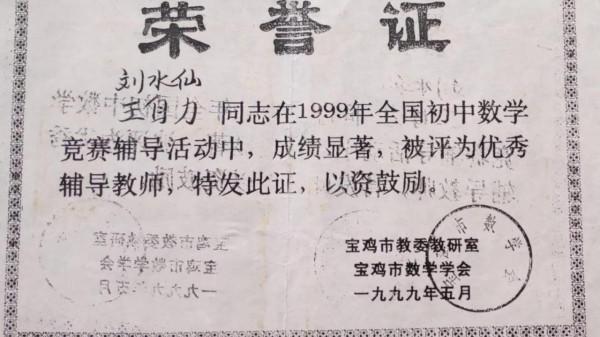 荣誉证
刘水仙
王自力 同志在1999年全国初中数学
竞赛辅导活动中，成绩显著，被评为优秀
辅导教师，特发此证，以资鼓励。
宝鸡市教委教研室
宝鸡市数学学会
一九九九年五月